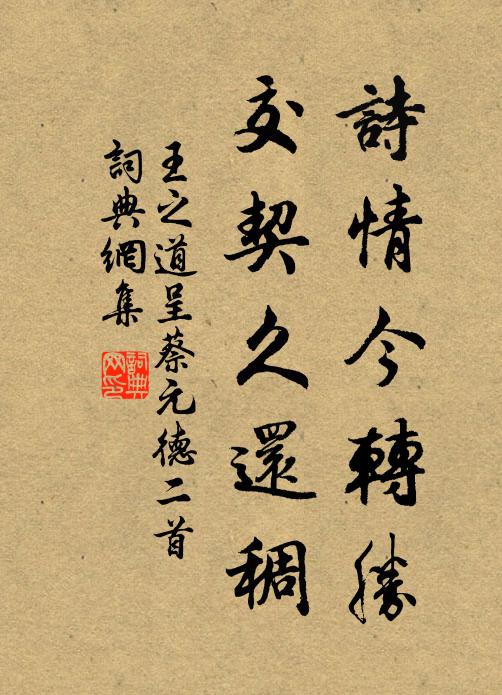 詩情今轉勝
交契久還稠
王之道呈蔡元德二首
詞典網集
詞典網印